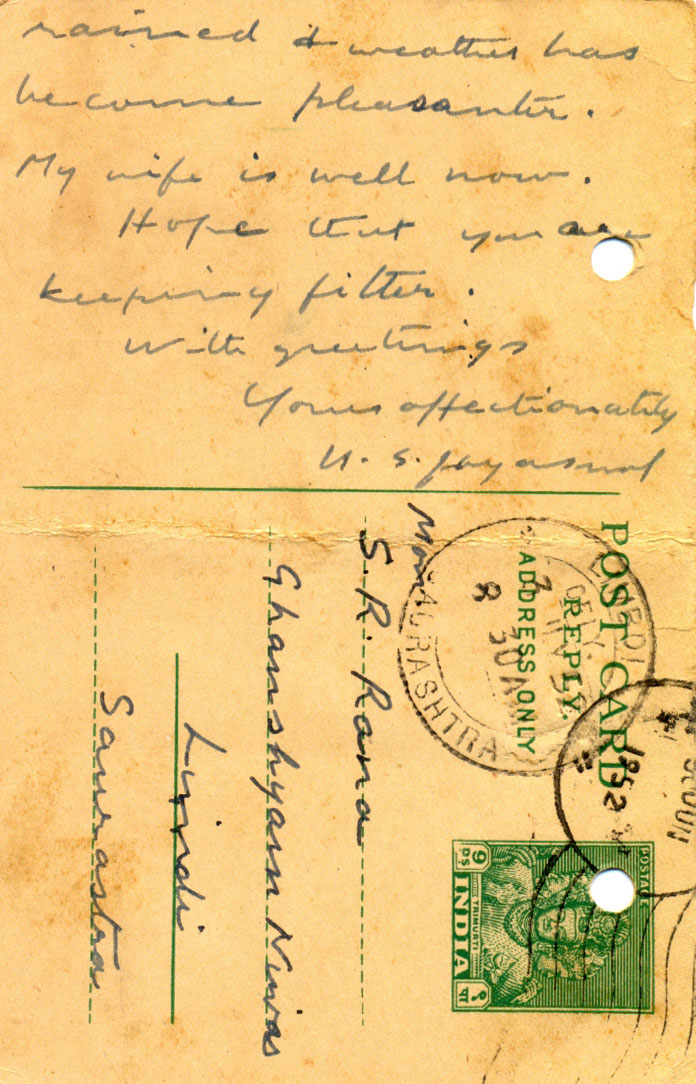 rained & weather has
become pleasanter.
My wife is well now.
Hope that you are
keeping fitter.
With greetings
Yours affectionately
POST CARD
REPLY.
ADDRESS ONLY
S. R. Rana
Ghanshyam Niwas
Limdi
Saurastra
LIMBDI
DELY.
8 30 A
SAURASHTRA
1952
POSTAGE
TRIMURTI
9 PS
INDIA
९ पा